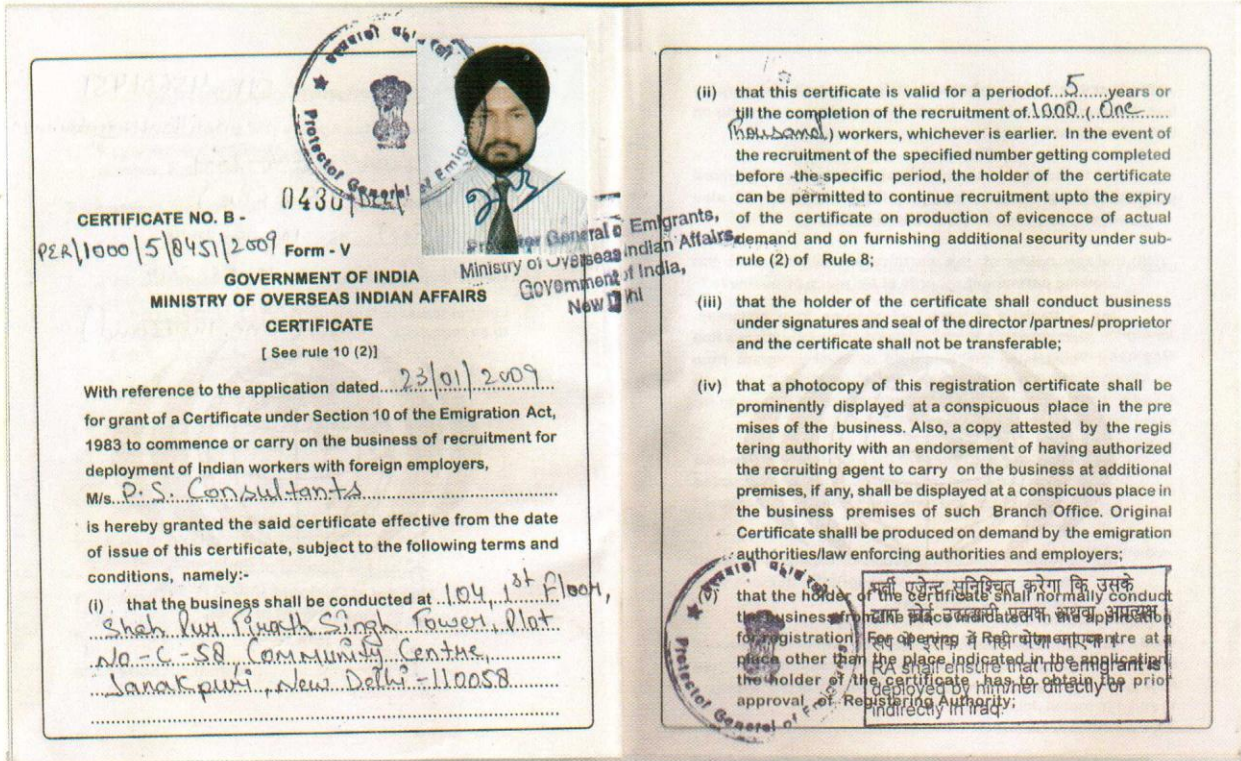 Protector General of Emigrants
CERTIFICATE NO. B - 0430
PER/1000/5/8451/2009 Form - V
Protector General of Emigrants,
Ministry of Overseas Indian Affairs,
Government of India,
New Delhi
GOVERNMENT OF INDIA
MINISTRY OF OVERSEAS INDIAN AFFAIRS
CERTIFICATE
[ See rule 10 (2)]
With reference to the application dated 23/01/2009
for grant of a Certificate under Section 10 of the Emigration Act,
1983 to commence or carry on the business of recruitment for
deployment of Indian workers with foreign employers,
M/s P.S. Consultants
is hereby granted the said certificate effective from the date
of issue of this certificate, subject to the following terms and
conditions, namely:-
(i) that the business shall be conducted at 104, 1st Floor,
Shah Pur Tirath Singh Tower, Plot
No-C-58, Community Centre,
Janakpuri, New Delhi-110058
(ii) that this certificate is valid for a periodof 5 years or
till the completion of the recruitment of 1000 (One
Thousand) workers, whichever is earlier. In the event of
the recruitment of the specified number getting completed
before the specific period, the holder of the certificate
can be permitted to continue recruitment upto the expiry
of the certificate on production of evicencce of actual
demand and on furnishing additional security under sub-
rule (2) of Rule 8;
(iii) that the holder of the certificate shall conduct business
under signatures and seal of the director /partnes/ proprietor
and the certificate shall not be transferable;
(iv) that a photocopy of this registration certificate shall be
prominently displayed at a conspicuous place in the pre
mises of the business. Also, a copy attested by the regis
tering authority with an endorsement of having authorized
the recruiting agent to carry on the business at additional
premises, if any, shall be displayed at a conspicuous place in
the business premises of such Branch Office. Original
Certificate shalll be produced on demand by the emigration
authorities/law enforcing authorities and employers;
that the holder of the certificate shall normally conduct
the business from the place indicated in the application
for registration. For opening a Recruitment centre at a
place other than the place indicated in the application,
the holder of the certificate has to obtain the prior
approval of Registering Authority;
Protector General of Emigrants
भर्ती एजेन्ट सुनिश्चित करेगा कि उसके
द्वारा कोई उत्प्रवासी प्रत्यक्ष अथवा अप्रत्यक्ष
रूप में इराक में नहीं भेजा जाएगा।
RA shall ensure that no emigrant is
deployed by him/her directly or
indirectly in Iraq.